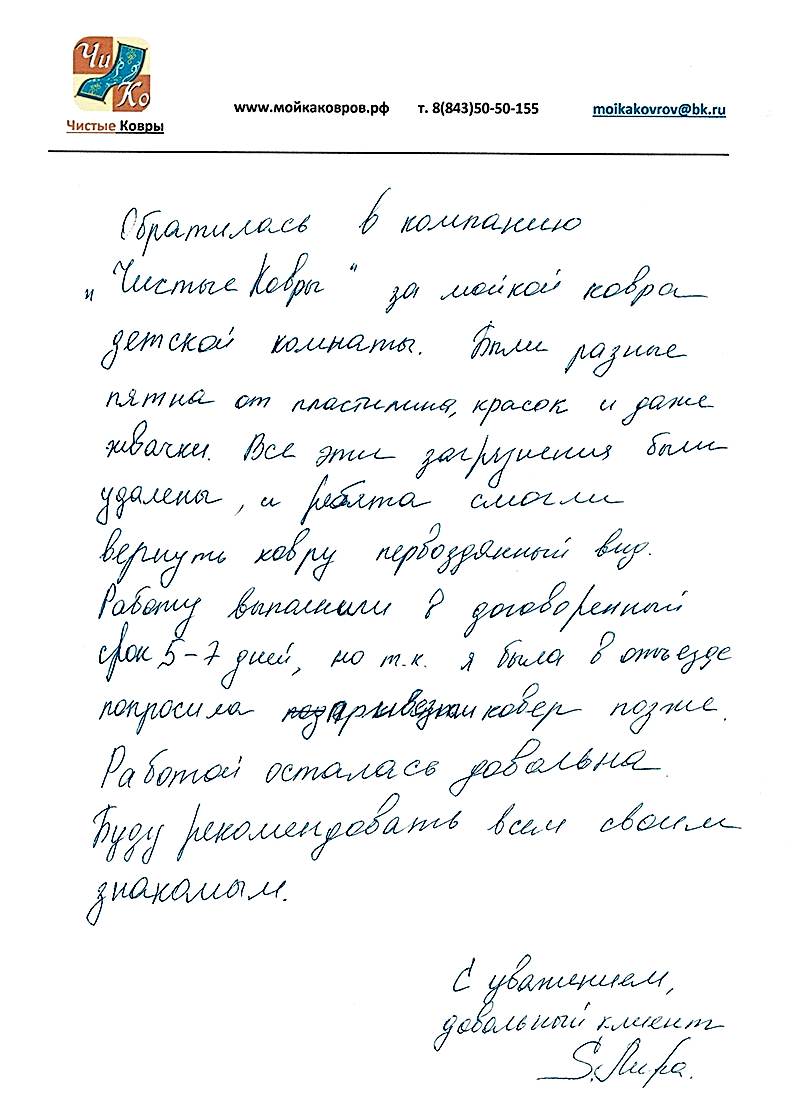 Чи
Ко
Чистые Ковры
www.мойкаковров.рф т. 8(843)50-50-155 moikakovrov@bk.ru
Обратилась в компанию
„Чистые Ковры" за мойкой ковра
детской комнаты. Были разные
пятна от пластилина, красок и даже
жвачки. Все эти загрузнения были
удалены, и ребята смогли
вернуть ковру первозданный вид.
Работу выполнили в договоренный
срок 5-7 дней, но т.к. я была в отъезде
попросила привезти ковер позже.
Работой осталась довольна.
Буду рекомендовать всем своим
знакомым.
С уважением,
довольный клиент